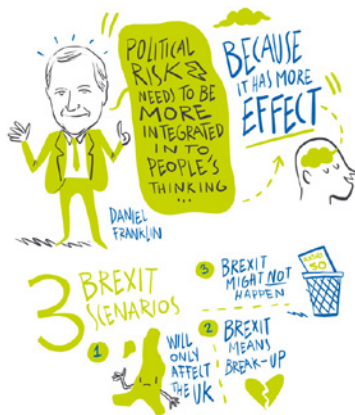 POLITICAL
RISK
NEEDS TO BE
MORE
INTEGRATED
IN TO
PEOPLE'S
THINKING
...
BECAUSE
IT HAS MORE
EFFECT
DANIEL
FRANKLIN
3 BREXIT
SCENARIOS
1
WILL
ONLY
AFFECT
THE UK
2 BREXIT
MEANS
BREAK-UP
3 BREXIT
MIGHT NOT
HAPPEN
50